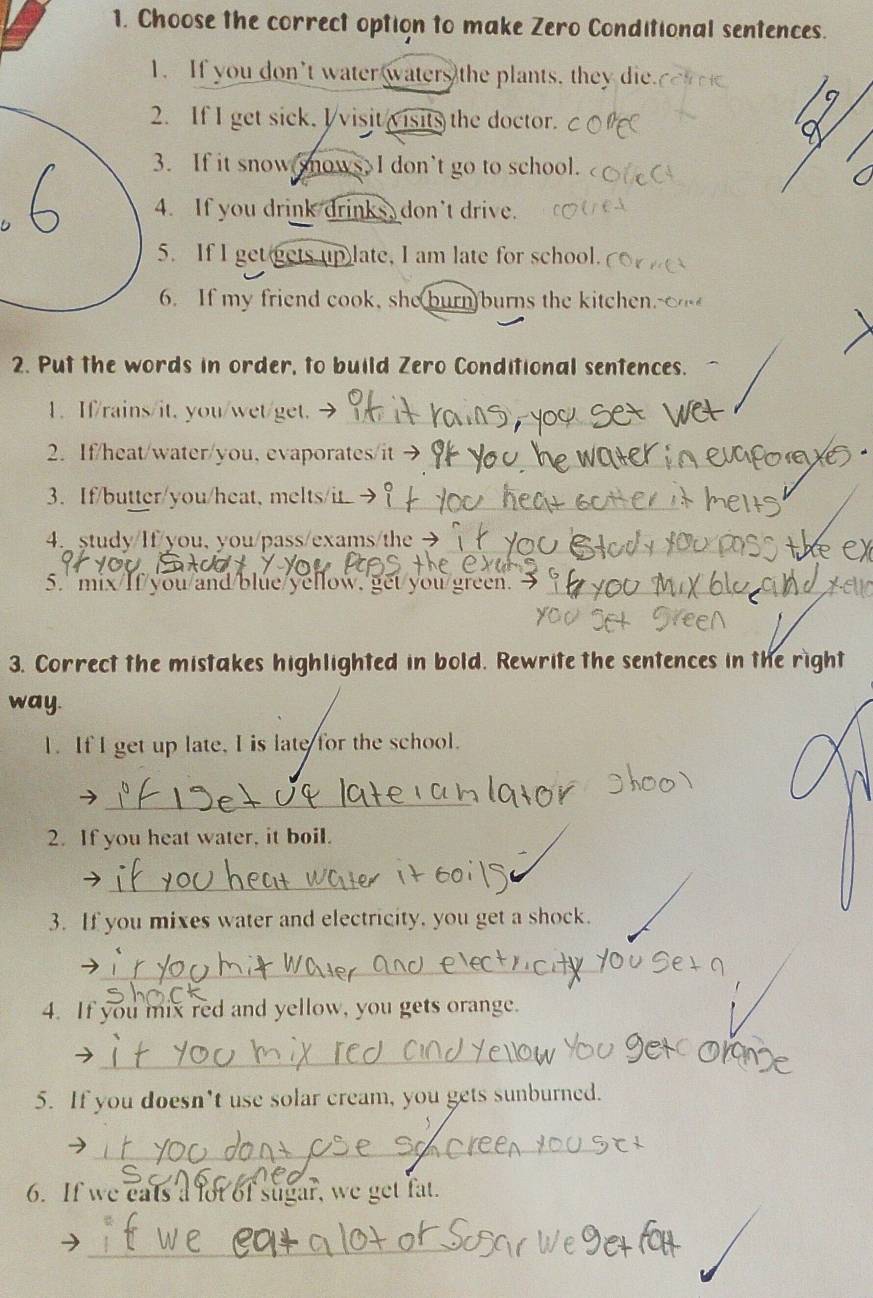 1. Choose the correct option to make Zero Conditional sentences.
1. If you don't water/waters/the plants, they die.
2. If I get sick, I visit/visits the doctor. coreC
3. If it snow/snows, I don't go to school. corecCt
4. If you drink/drinks, don't drive.
5. If I get/gets up/late, I am late for school.
6. If my friend cook, she burn/burns the kitchen.
6
2. Put the words in order, to build Zero Conditional sentences.
1. If/rains/it, you/wet/get. → if it rains, you get wet
2. If/heat/water/you, evaporates/it → if you he water in evaporaxes.
3. If/butter/you/heat, melts/it → if you heat butter it melts
4. study/If you, you/pass/exams/the → if you study you pass the ex
if you study y you pass the exams
5. mix/If/you/and/blue/yellow, get/you/green. → if you mix blue and yello
you get green
3. Correct the mistakes highlighted in bold. Rewrite the sentences in the right
way.
1. If I get up late, I is late for the school.
→ if I get up late i am lator shool
2. If you heat water, it boil.
→ if you heat water it boils
3. If you mixes water and electricity, you get a shock.
→ if you mix water and electricity you get a
shock
4. If you mix red and yellow, you gets orange.
→ it you mix red and yellow you get orange
5. If you doesn't use solar cream, you gets sunburned.
→ if you dont use suncreen you get
sunburned
6. If we eats a lot of sugar, we get fat.
→ if we eat a lot of Sugar we get fat